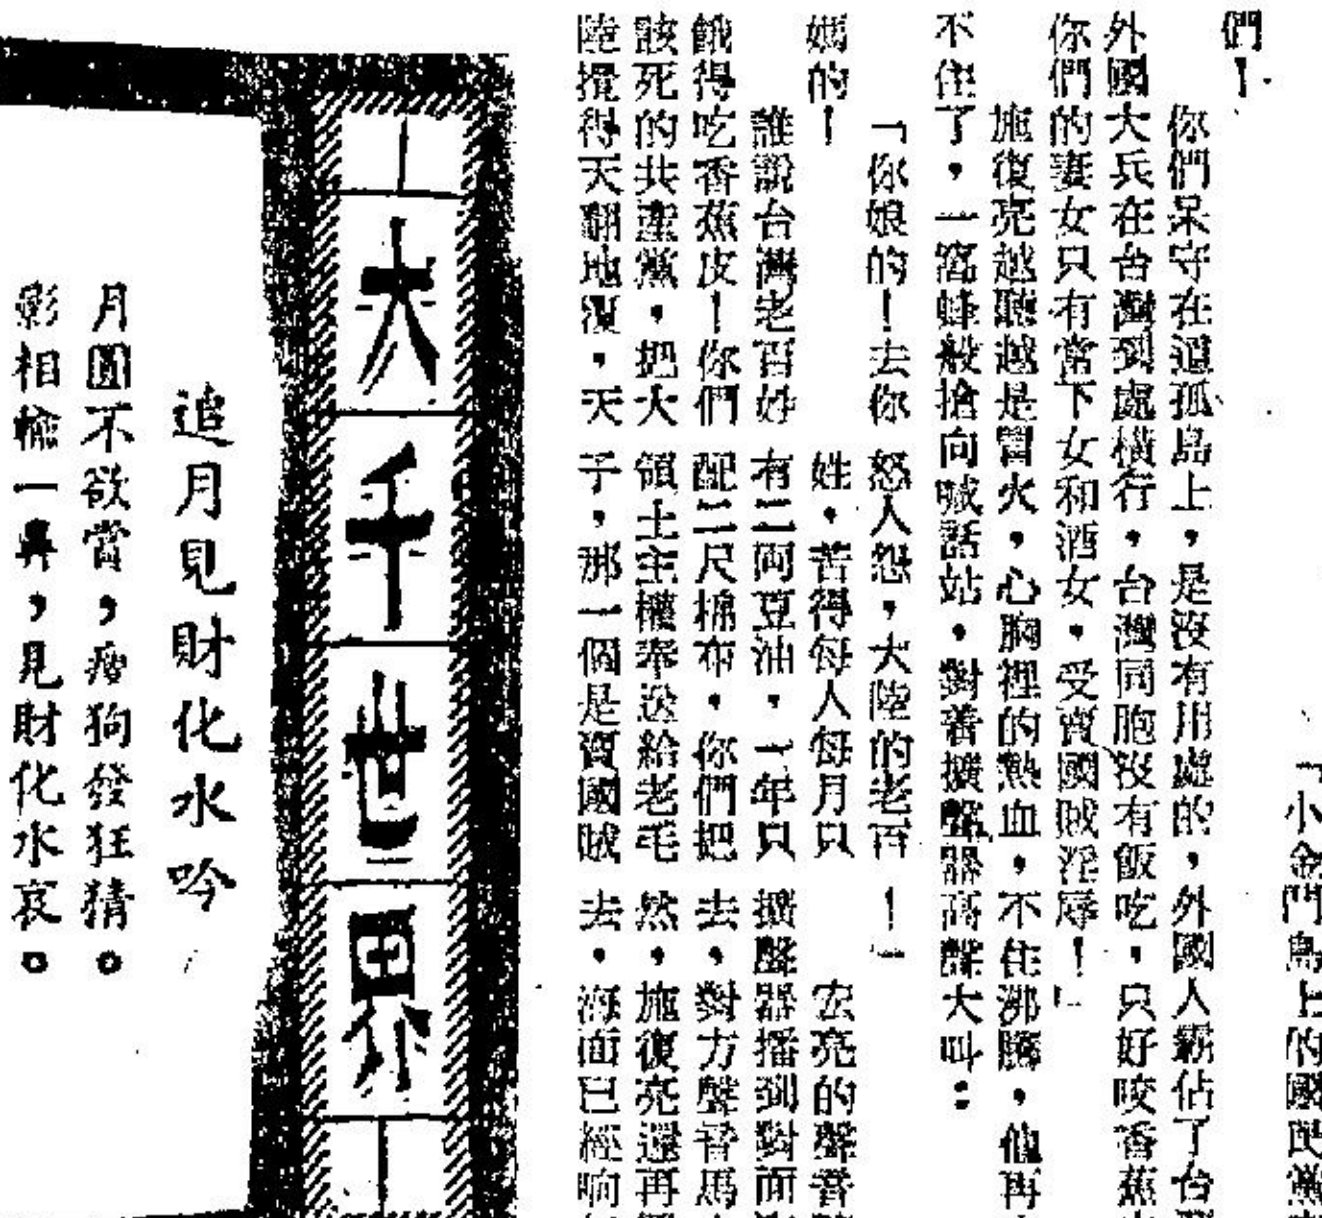 「小金門島上的國民黨
們！
你們呆守在這孤島上，是沒有用處的，外國人霸佔了台
外國大兵在台灣到處橫行，台灣同胞沒有飯吃，只好咬香蕉
你們的妻女只有當下女和酒女，受賣國賊淫辱！」
施復亮越聽越是冒火，心胸裡的熱血，不住沸騰，他再
不住了，一窩蜂般搶向喊話站，對着擴聲器高聲大叫：
「你娘的！去你
媽的！
誰說台灣老百姓
餓得吃香蕉皮！你們
該死的共產黨，把大
陸攪得天翻地覆，天
怒人怨，大陸的老百
姓，苦得每人每月只
有二両豆油，一年只
配二尺棉布，你們把
領土主權奉送給老毛
子，那一個是賣國賊
！」
宏亮的聲音
擴聲器播到對面
去，對方聲音馬
然，施復亮還再
去，海面已經响
大千世界
追月見財化水吟
月圓不欲賞，瘦狗發狂猜。
影相一鼻，見財化水哀。